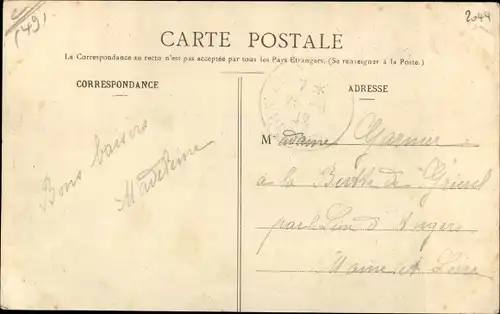 (49)
2044
CARTE POSTALE
La Correspondance au recto n'est pas acceptée par tous les Pays Étrangers. (Se renseigner à la Poste.)
CORRESPONDANCE
Bons baisers
Madeleine
ADRESSE
Madame Garnier
à la Butte de
par Lion d'Angers
Maine et Loire